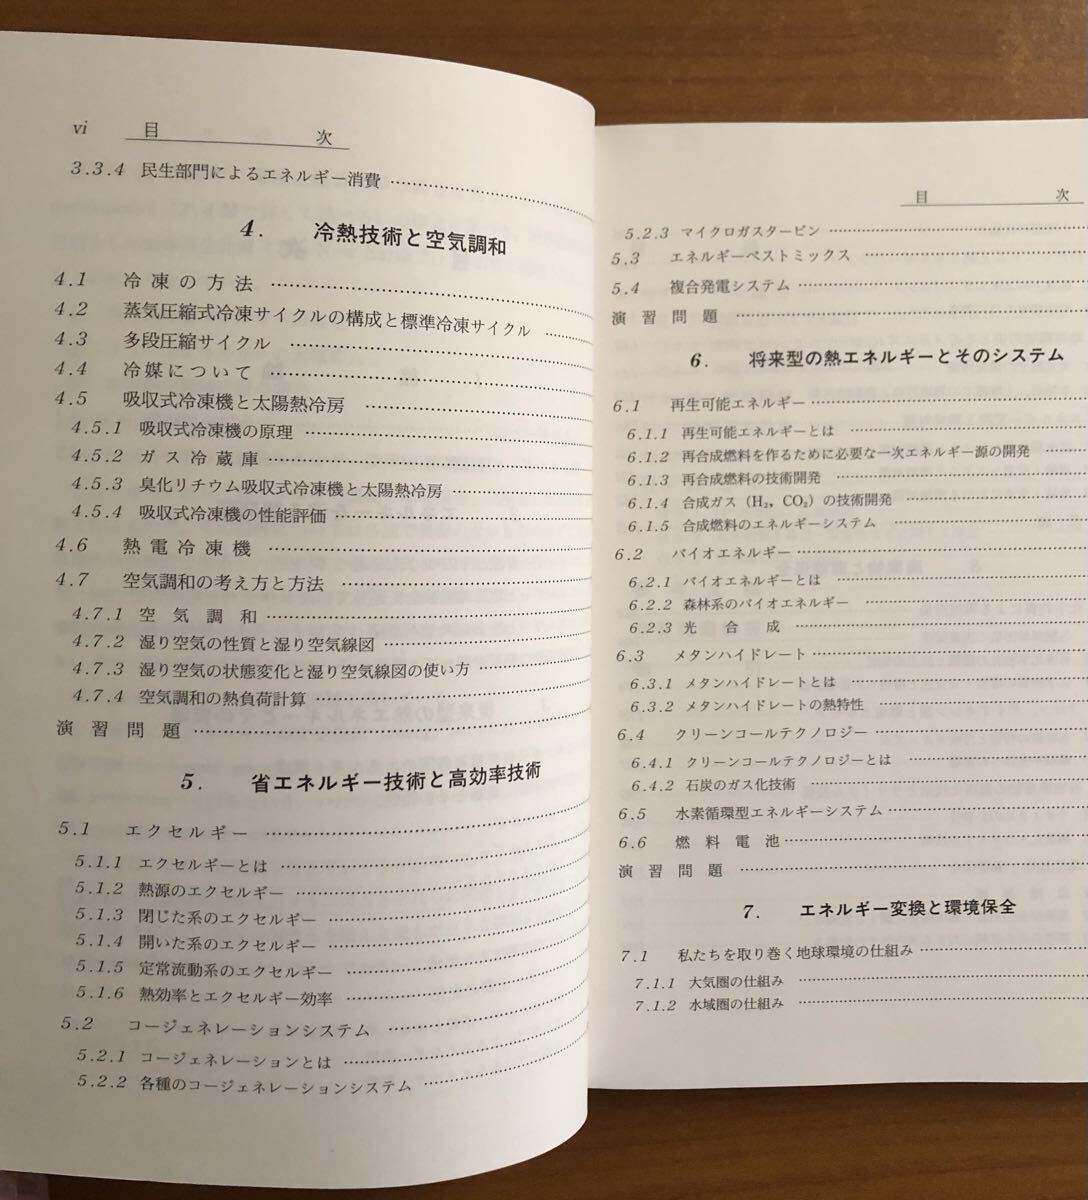 vi 目 次
3.3.4 民生部門によるエネルギー消費
4. 冷熱技術と空気調和
4.1 冷凍の方法
4.2 蒸気圧縮式冷凍サイクルの構成と標準冷凍サイクル
4.3 多段圧縮サイクル
4.4 冷媒について
4.5 吸収式冷凍機と太陽熱冷房
4.5.1 吸収式冷凍機の原理
4.5.2 ガス冷蔵庫
4.5.3 臭化リチウム吸収式冷凍機と太陽熱冷房
4.5.4 吸収式冷凍機の性能評価
4.6 熱電冷凍機
4.7 空気調和の考え方と方法
4.7.1 空気調和
4.7.2 湿り空気の性質と湿り空気線図
4.7.3 湿り空気の状態変化と湿り空気線図の使い方
4.7.4 空気調和の熱負荷計算
演習問題
5. 省エネルギー技術と高効率技術
5.1 エクセルギー
5.1.1 エクセルギーとは
5.1.2 熱源のエクセルギー
5.1.3 閉じた系のエクセルギー
5.1.4 開いた系のエクセルギー
5.1.5 定常流動系のエクセルギー
5.1.6 熱効率とエクセルギー効率
5.2 コージェネレーションシステム
5.2.1 コージェネレーションとは
5.2.2 各種のコージェネレーションシステム
目 次
5.2.3 マイクロガスタービン
5.3 エネルギーベストミックス
5.4 複合発電システム
演習問題
6. 将来型の熱エネルギーとそのシステム
6.1 再生可能エネルギー
6.1.1 再生可能エネルギーとは
6.1.2 再合成燃料を作るために必要な一次エネルギー源の開発
6.1.3 再合成燃料の技術開発
6.1.4 合成ガス（H₂，CO₂）の技術開発
6.1.5 合成燃料のエネルギーシステム
6.2 バイオエネルギー
6.2.1 バイオエネルギーとは
6.2.2 森林系のバイオエネルギー
6.2.3 光合成
6.3 メタンハイドレート
6.3.1 メタンハイドレートとは
6.3.2 メタンハイドレートの熱特性
6.4 クリーンコールテクノロジー
6.4.1 クリーンコールテクノロジーとは
6.4.2 石炭のガス化技術
6.5 水素循環型エネルギーシステム
6.6 燃料電池
演習問題
7. エネルギー変換と環境保全
7.1 私たちを取り巻く地球環境の仕組み
7.1.1 大気圏の仕組み
7.1.2 水域圏の仕組み